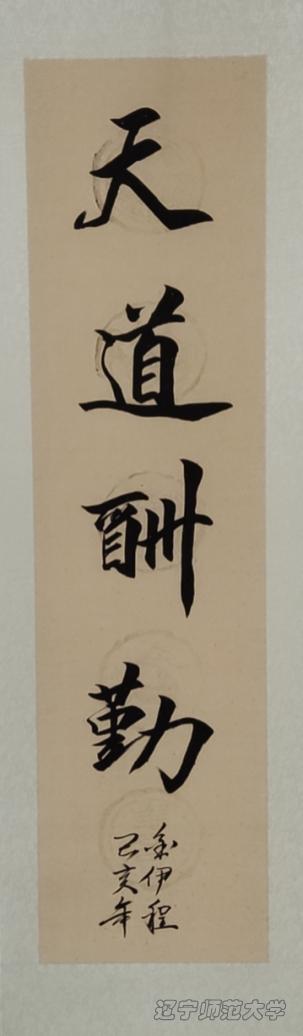 天道酬勤
金伊程
己亥年
辽宁师范大学